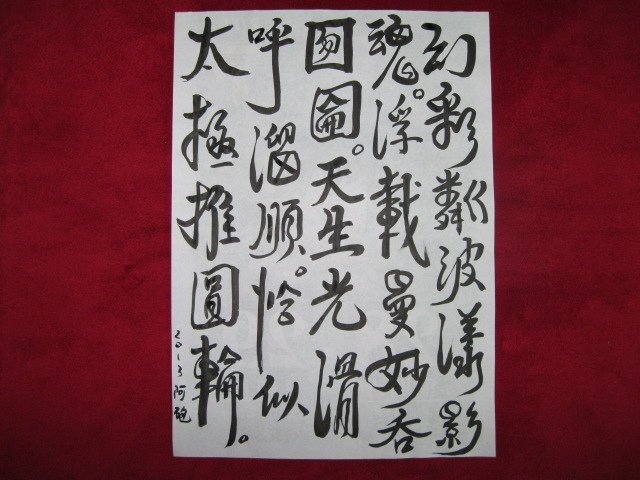 幻彩粼波漾影
魂。浮載曼妙吞
囫圇。天生光滑
呼溜順。恰似
太極推圓輪。
2013阿